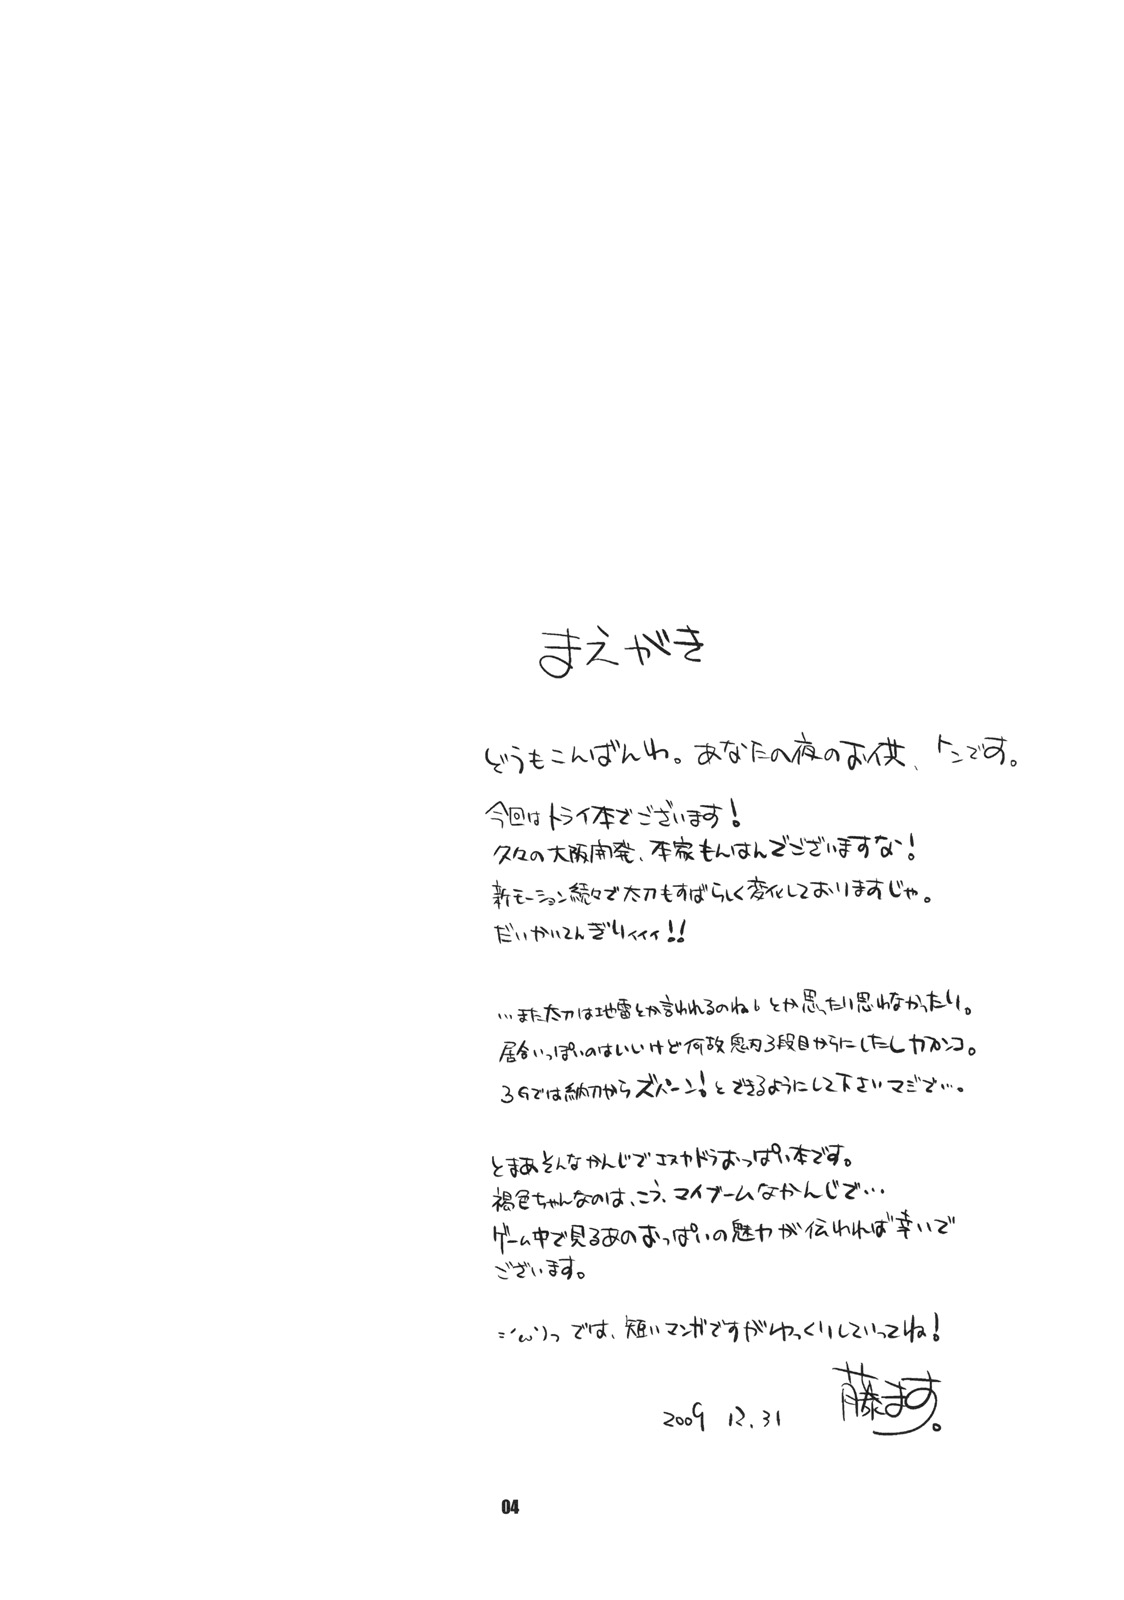 まえがき
どうもこんばんわ。あなたの夜のお供、トンです。
今回はトライ本でございます!
久々の大阪開発、本家もんはんでございますな!
新モーション続々で太刀もすばらしく変化しておりますじゃ。
だいかいてんぎりィィィ!!
…また太刀は地雷とか言われるのねぃとか思ったり思わなかったり。
居合いっぽいのはいいけど何故鬼刃3段目からにしたしカプンコ。
3Gでは納刀からズバーン!とできるようにして下さいマジで…。
とまあそんなかんじでエスカドラおっぱい本です。
褐色ちゃんなのは、こう、マイブームなかんじで…
ゲーム中で見るあのおっぱいの魅力が伝われば幸いで
ございます。
では、短いマンガですがゆっくりしていってね!
藤ます。
2009 12.31
04